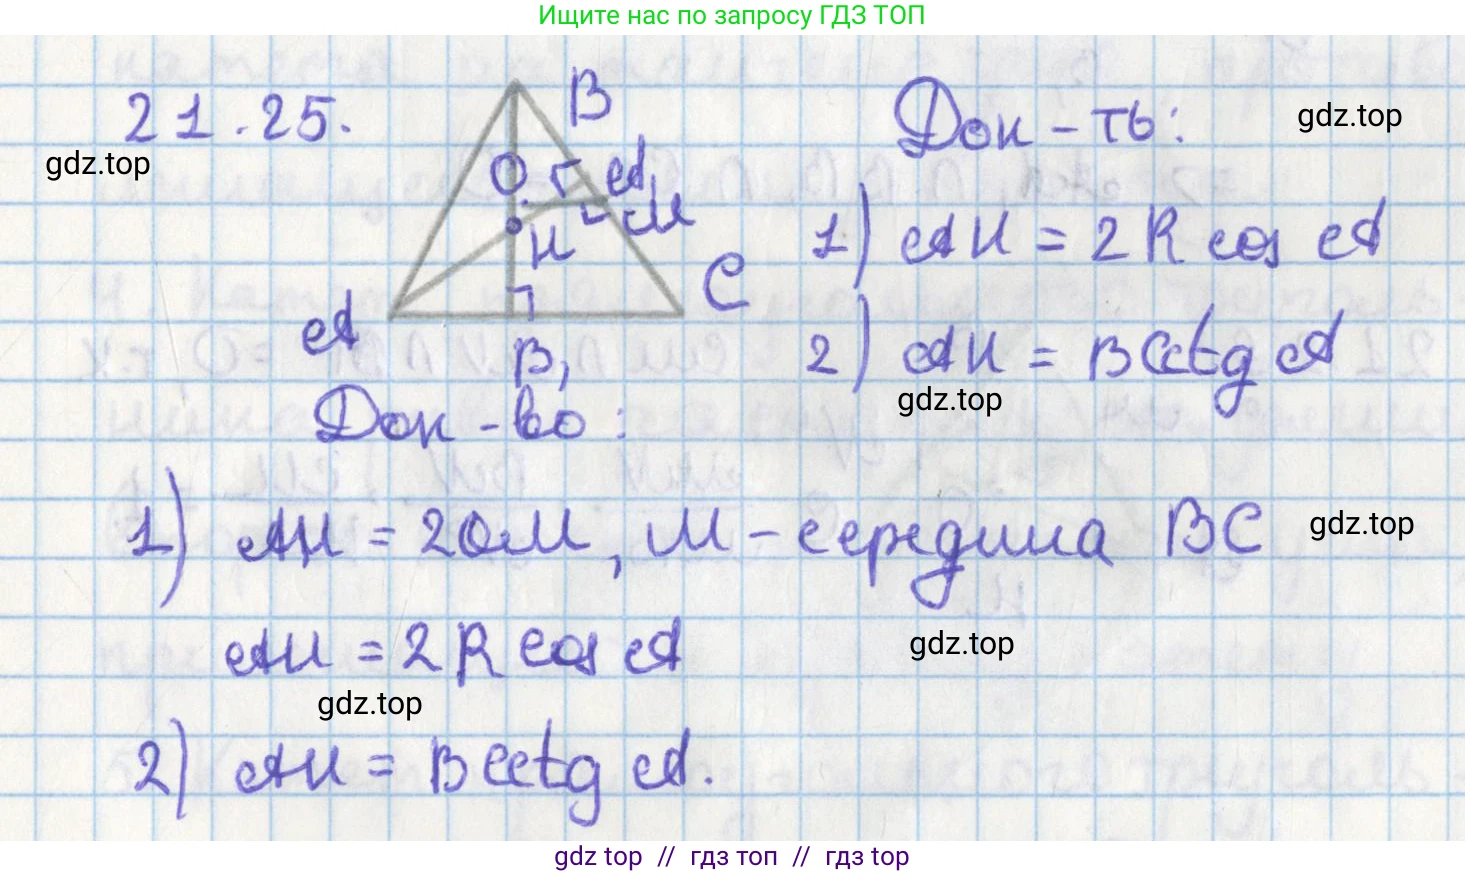 Ищите нас по запросу ГДЗ ТОП
21.25.
gdz.top
B
O
A₁
M
H
C
A
B₁
Док-ть:
gdz.top
1) AH = 2R cos A
2) AH = BC ctg A
gdz.top
Док-во:
1) AH = 2OM, M - середина BC
gdz.top
AH = 2R cos A
gdz.top
gdz.top
2) AH = BC ctg A.
gdz top // гдз топ // гдз top